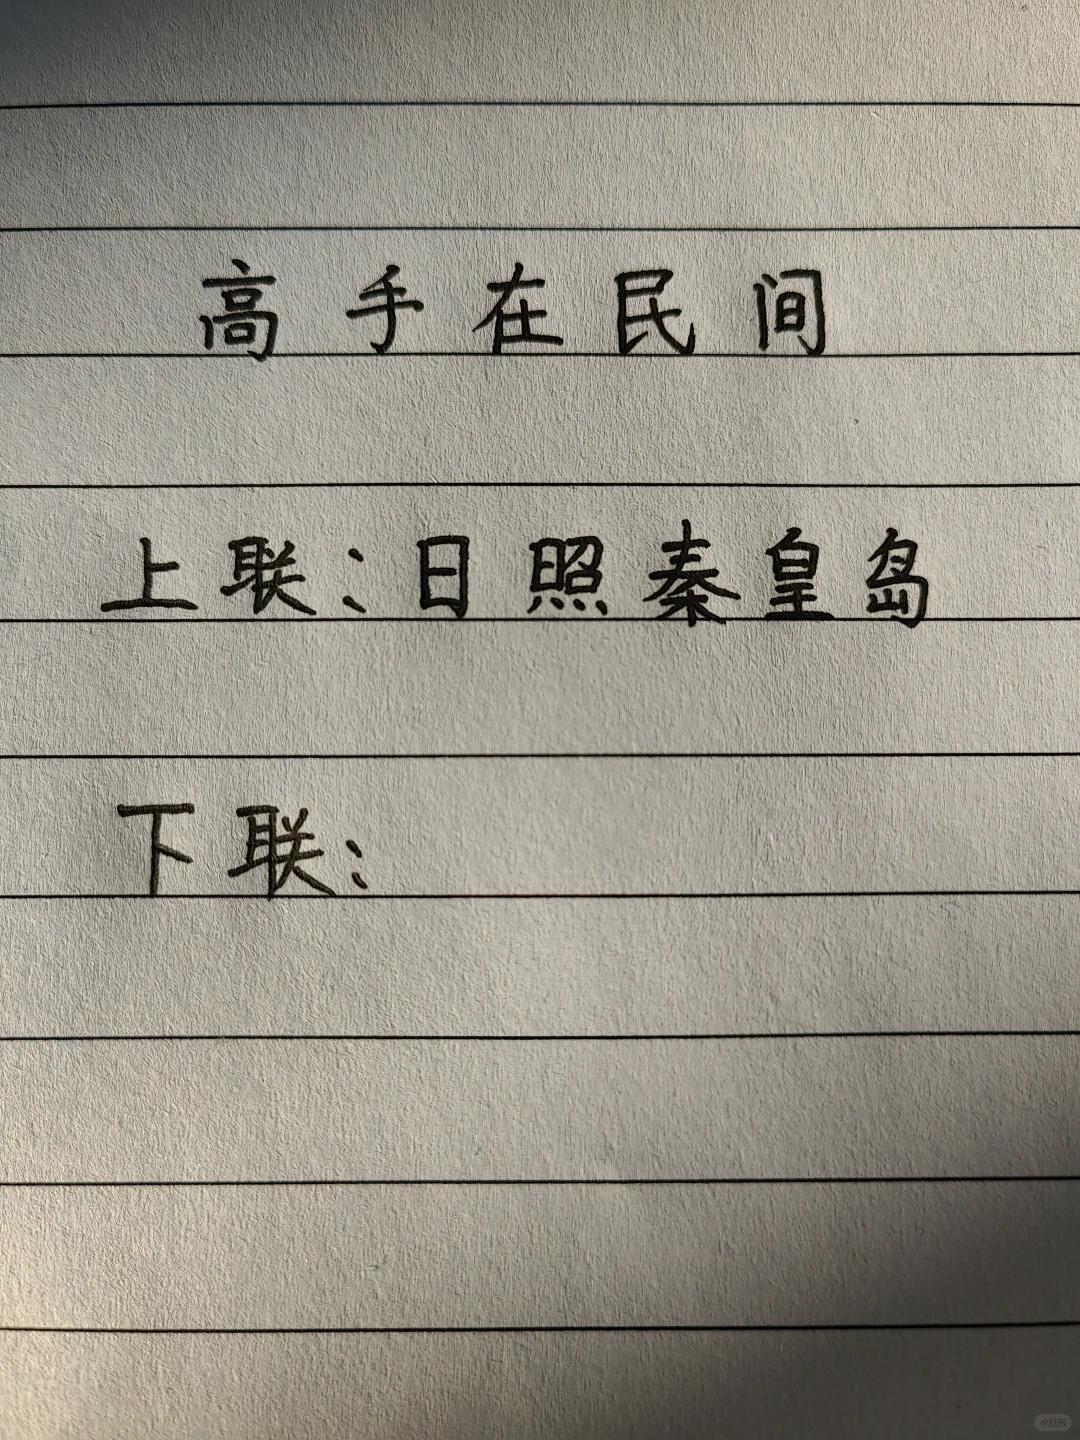 高手在民间
上联:日照秦皇岛
下联:
小红书